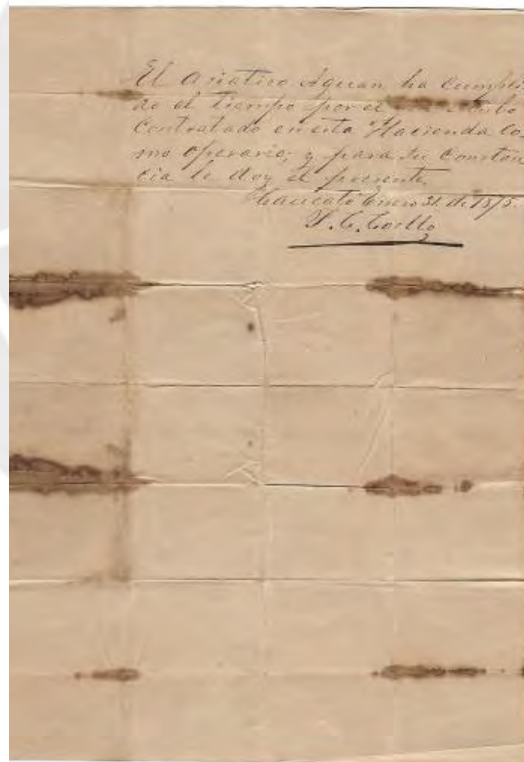 El Asiatico Aquan ha cumpli
do el tiempo por el
Contratado en esta Hacienda Co
mo Operario; y para su Constan
cia le doy el presente.
Enero 31 de 187